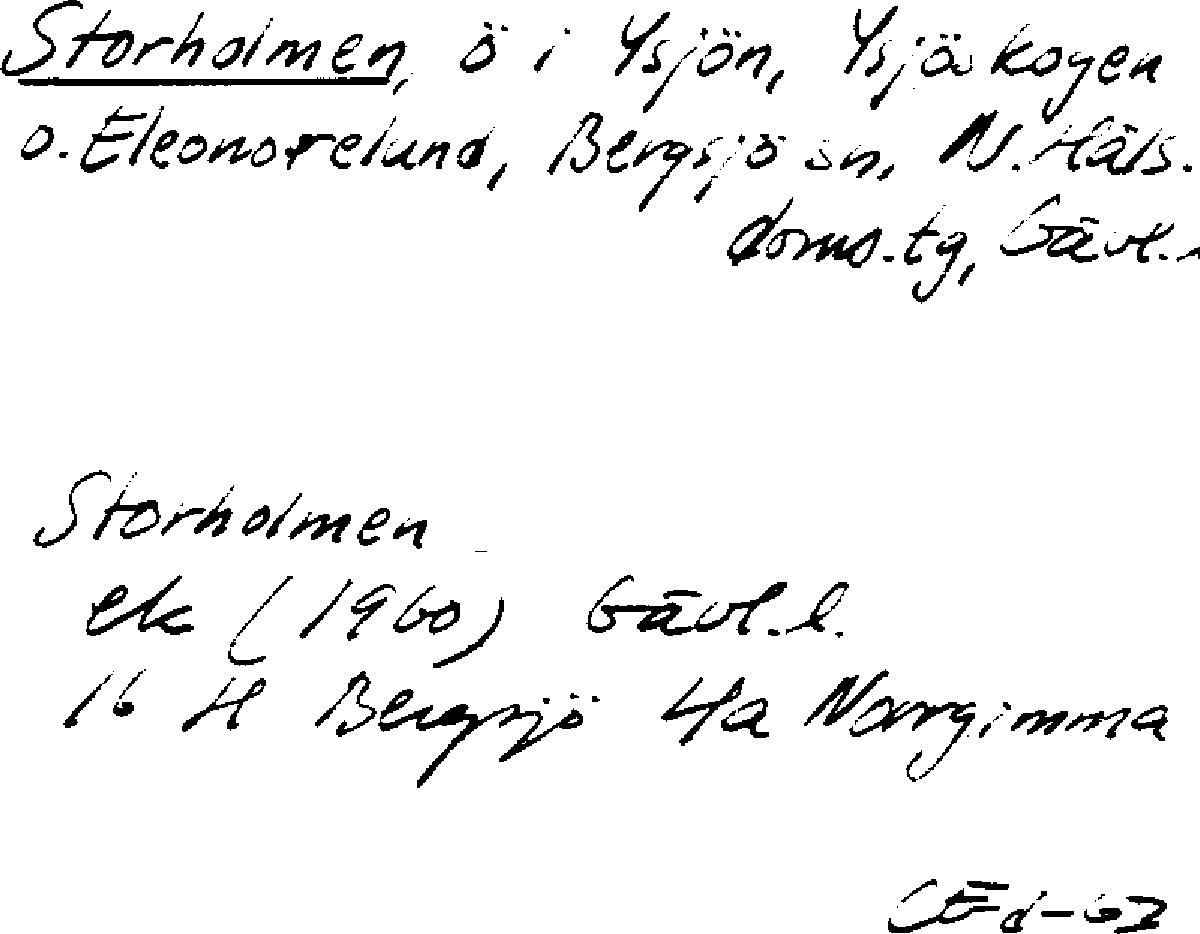 Storholmen, ö i Ysjön, Ysjökojen
o. Eleonorelund, Bergsjö sn, N. Häls.
doms.tg, Gävl.
Storholmen
ek (1960) Gävl.l.
16 H Bergsjö 4a Norrgimma
CEd-62